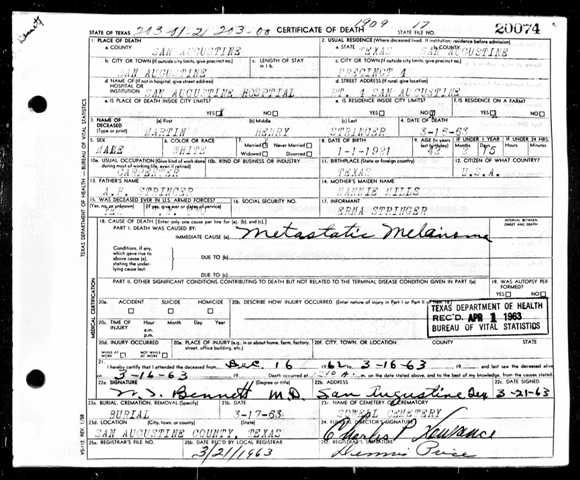 Bennett
1909 17
STATE OF TEXAS
CERTIFICATE OF DEATH
STATE FILE NO. 20074
1. PLACE OF DEATH
a. COUNTY
SAN AUGUSTINE
2. USUAL RESIDENCE (Where deceased lived. If institution: residence before admission)
a. STATE TEXAS
SAN AUGUSTINE
b. CITY OR TOWN (If outside city limits, give precinct no.)
SAN AUGUSTINE
c. LENGTH OF STAY in 1 b.
c. CITY OR TOWN (If outside city limits, give precinct no.)
PRECINCT 4
d. NAME OF (If not in hospital, give street address) HOSPITAL OR INSTITUTION
SAN AUGUSTINE HOSPITIAL
d. STREET ADDRESS (If rural, give location)
RT. 4 SAN AUGUSTINE
e. IS PLACE OF DEATH INSIDE CITY LIMITS? YES NO
e. IS RESIDENCE INSIDE CITY LIMITS? YES NO
f. IS RESIDENCE ON A FARM? YES NO
3. NAME OF DECEASED (Type or print)
(a) First MARTIN
(b) Middle HENRY
(c) Last STRINGER
4. DATE OF DEATH
3-16-63
5. SEX MALE
6. COLOR OR RACE WHITE
7. Married Never Married Widowed Divorced
8. DATE OF BIRTH
1-1-1921
9. AGE 42 2 15
10a. USUAL OCCUPATION (Give kind of work done during most of working life, even if retired)
CARPENTER
10b. KIND OF BUSINESS OR INDUSTRY
11. BIRTHPLACE (State or foreign country)
TEXAS
12. CITIZEN OF WHAT COUNTRY?
U.S.A.
13. FATHER'S NAME
A.F. STRINGER
14. MOTHER'S MAIDEN NAME
NANNIE MILLS
15. WAS DECEASED EVER IN U.S. ARMED FORCES?
16. SOCIAL SECURITY NO.
17. INFORMANT
ERMA STRINGER
18. CAUSE OF DEATH [Enter only one cause per line for (a), (b), and (c).]
INTERVAL BETWEEN ONSET AND DEATH
PART I. DEATH WAS CAUSED BY:
IMMEDIATE CAUSE (a) Metastatic Melanoma
Conditions, if any, which gave rise to above cause (a), stating the underlying cause last.
DUE TO (b)
DUE TO (c)
PART II. OTHER SIGNIFICANT CONDITIONS CONTRIBUTING TO DEATH BUT NOT RELATED TO THE TERMINAL DISEASE CONDITION GIVEN IN PART I(a)
19. WAS AUTOPSY PERFORMED? YES NO
20a. ACCIDENT SUICIDE HOMICIDE
20b. DESCRIBE HOW INJURY OCCURRED.
TEXAS DEPARTMENT OF HEALTH
REC'D APR 1 1963
BUREAU OF VITAL STATISTICS
20c. TIME OF INJURY Hour Month Day Year a.m. p.m.
20d. INJURY OCCURRED WHILE AT WORK NOT WHILE AT WORK
20e. PLACE OF INJURY (e.g. in or about home, farm, factory, street, office building, etc.)
20f. CITY, TOWN, OR LOCATION COUNTY STATE
21. I hereby certify that I attended the deceased from Dec. 16 1962 to 3-16-63 and last saw the deceased alive
on 3-16-63 Death occurred at m. on the date stated above, and to the best of my knowledge, from the causes stated.
22a. SIGNATURE (Degree or title) Bennett M.D.
22b. ADDRESS San Augustine
22c. DATE SIGNED 3-21-63
23a. BURIAL, CREMATION, REMOVAL (Specify)
BURIAL
23b. DATE 3-17-63
23c. NAME OF CEMETERY OR CREMATORY
CEMETERY
23d. LOCATION (City, town, or county) (State)
SAN AUGUSTINE COUNTY, TEXAS
24. FUNERAL DIRECTOR'S SIGNATURE
Charles
25a. REGISTRAR'S FILE NO.
25b. DATE REC'D BY LOCAL REGISTRAR
3/21/1963
25c. REGISTRAR'S SIGNATURE
Dennis Price
TEXAS DEPARTMENT OF HEALTH - BUREAU OF VITAL STATISTICS
MEDICAL CERTIFICATION